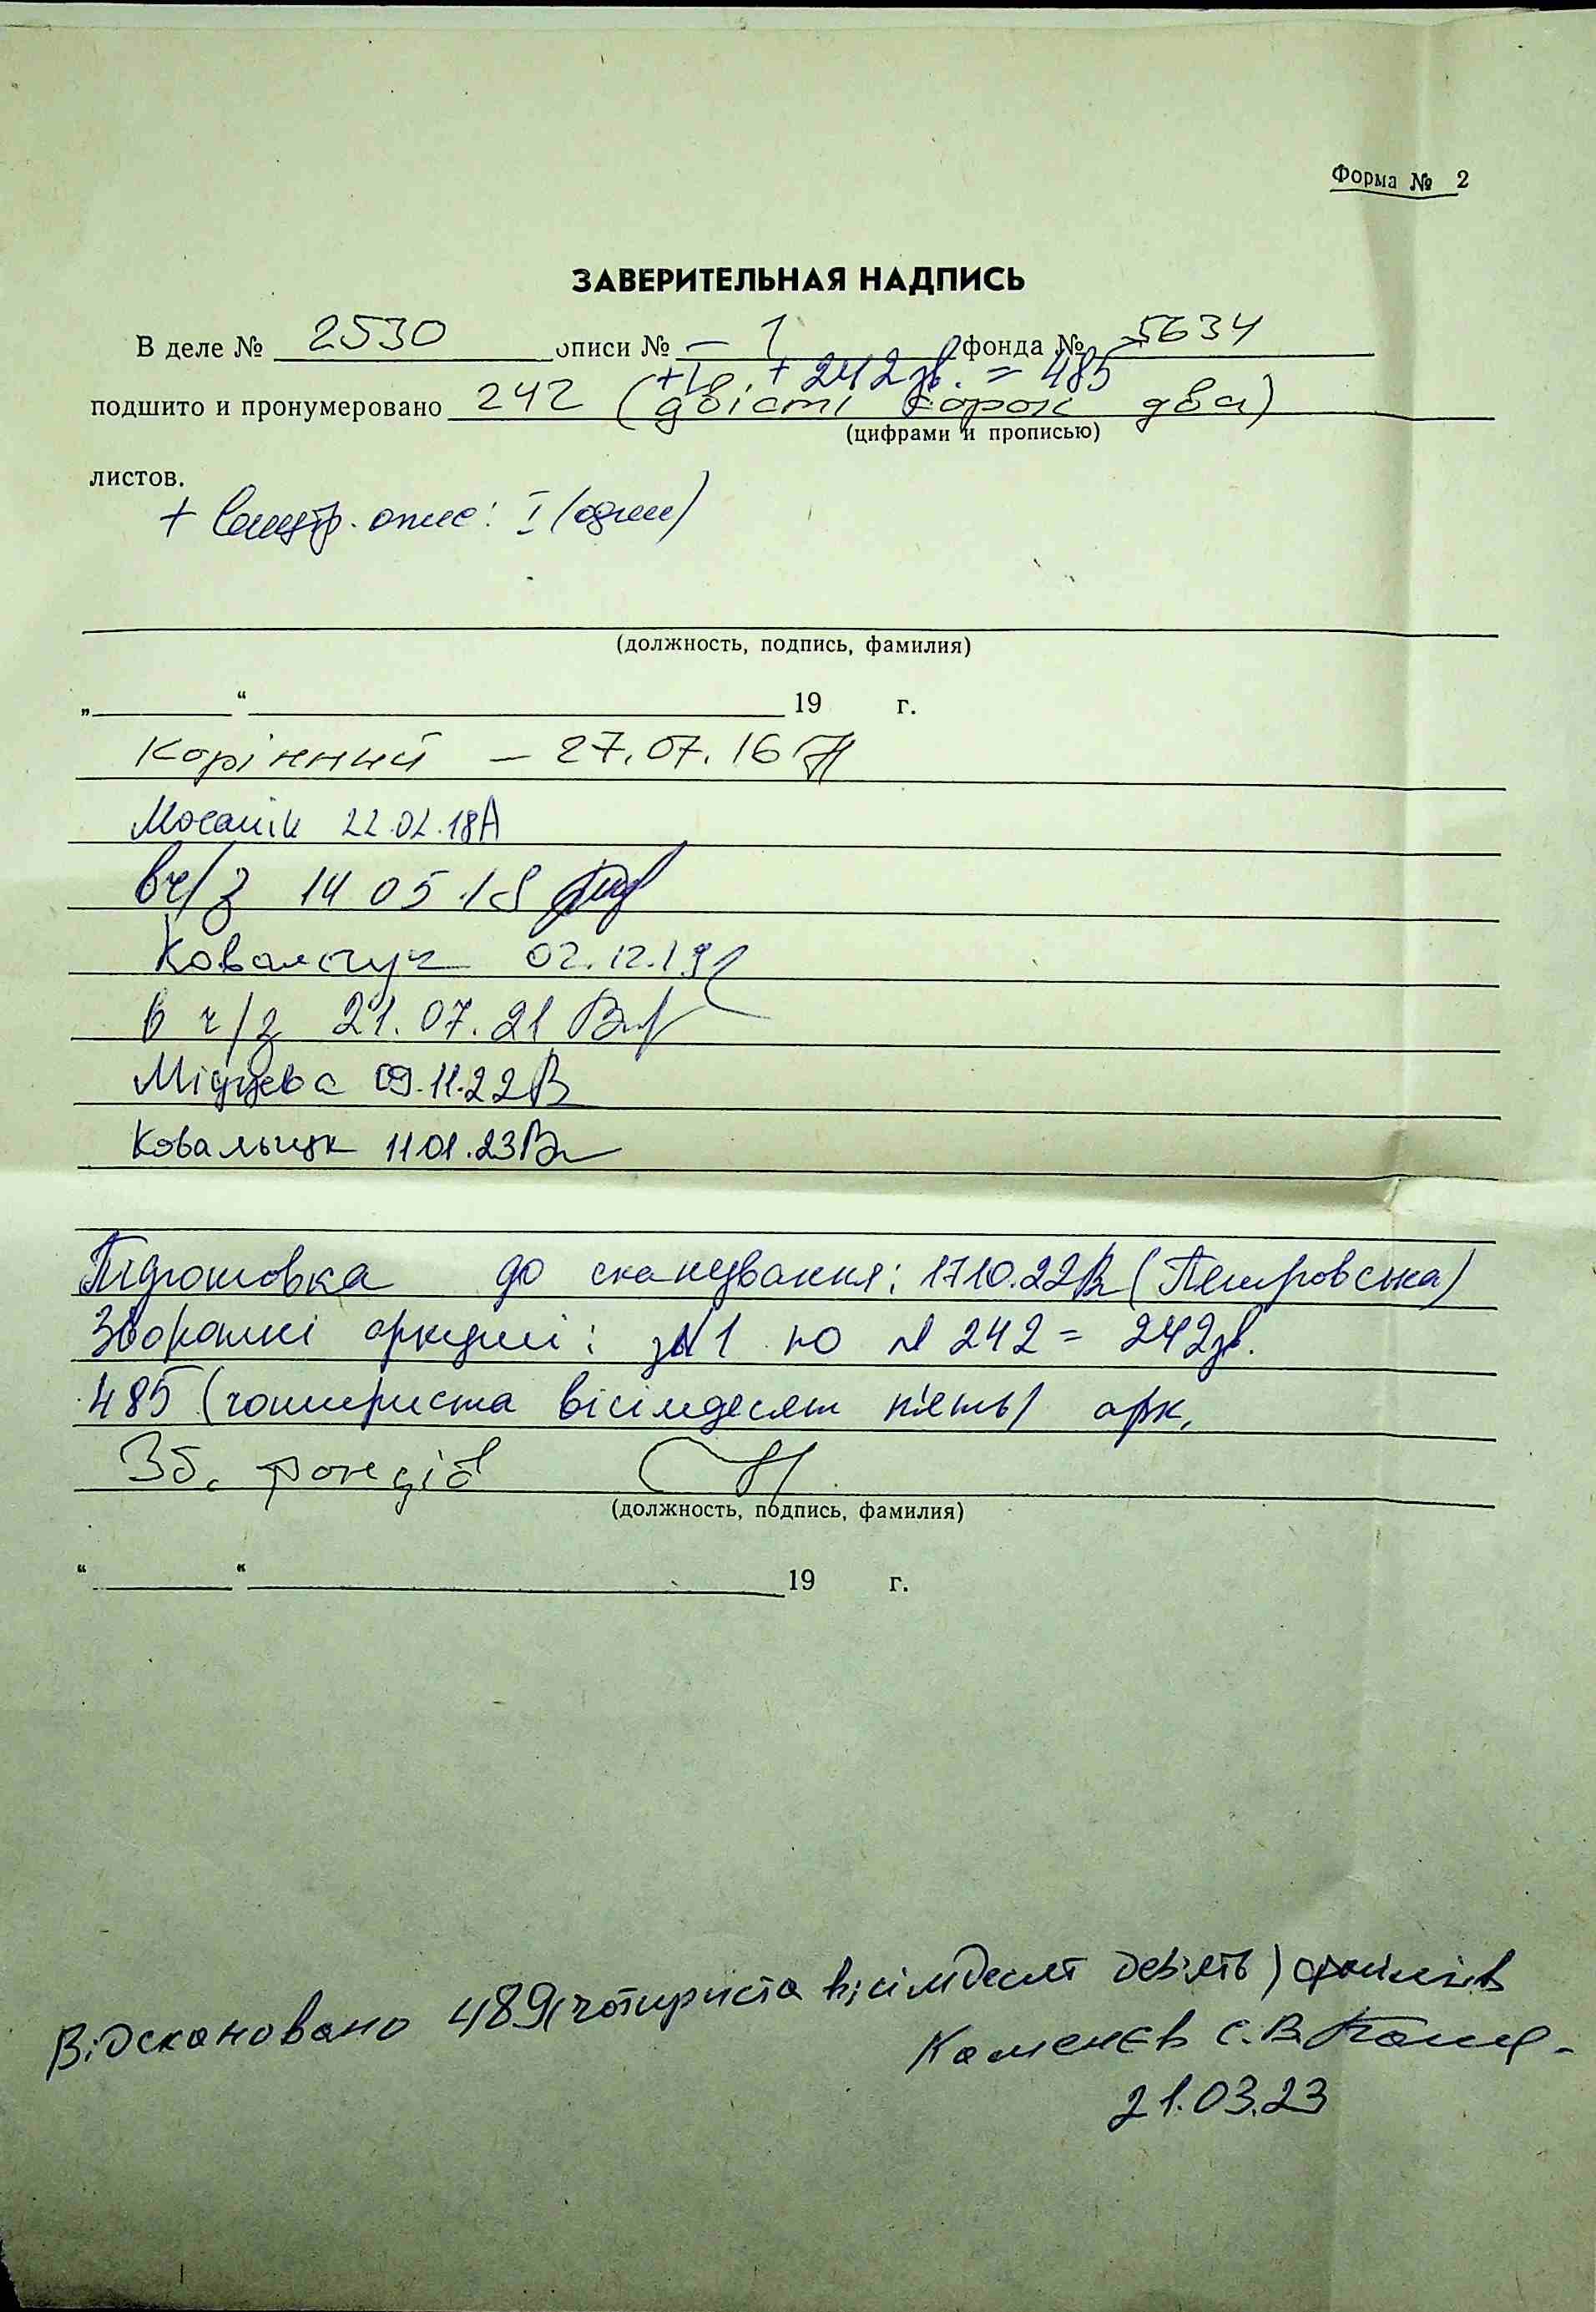 Форма № 2
ЗАВЕРИТЕЛЬНАЯ НАДПИСЬ
В деле № 2530 описи № – 1 фонда № 5634
+ 242 зв. = 485
подшито и пронумеровано 242 (двісті сорок два)
(цифрами и прописью)
листов.
+ внутр. опис: I (один)
(должность, подпись, фамилия)
„ “ 19 г.
Корінний – 27.07.16
22.02.18
в ч/з 14 05 18
Ковальчук 02.12.19
в ч/з 21.07.21
09.11.22
Ковальчук 11 01.23
Підготовка до сканування: 17 10.22 (Петровська)
Зворотні аркуші: з №1 по № 242 = 242 зв.
485 (чотириста вісімдесят п'ять) арк.
Зб. фондів
(должность, подпись, фамилия)
“ “ 19 г.
Відскановано 489 (чотириста вісімдесят дев'ять) файлів
Каменєв С.В.
21.03.23